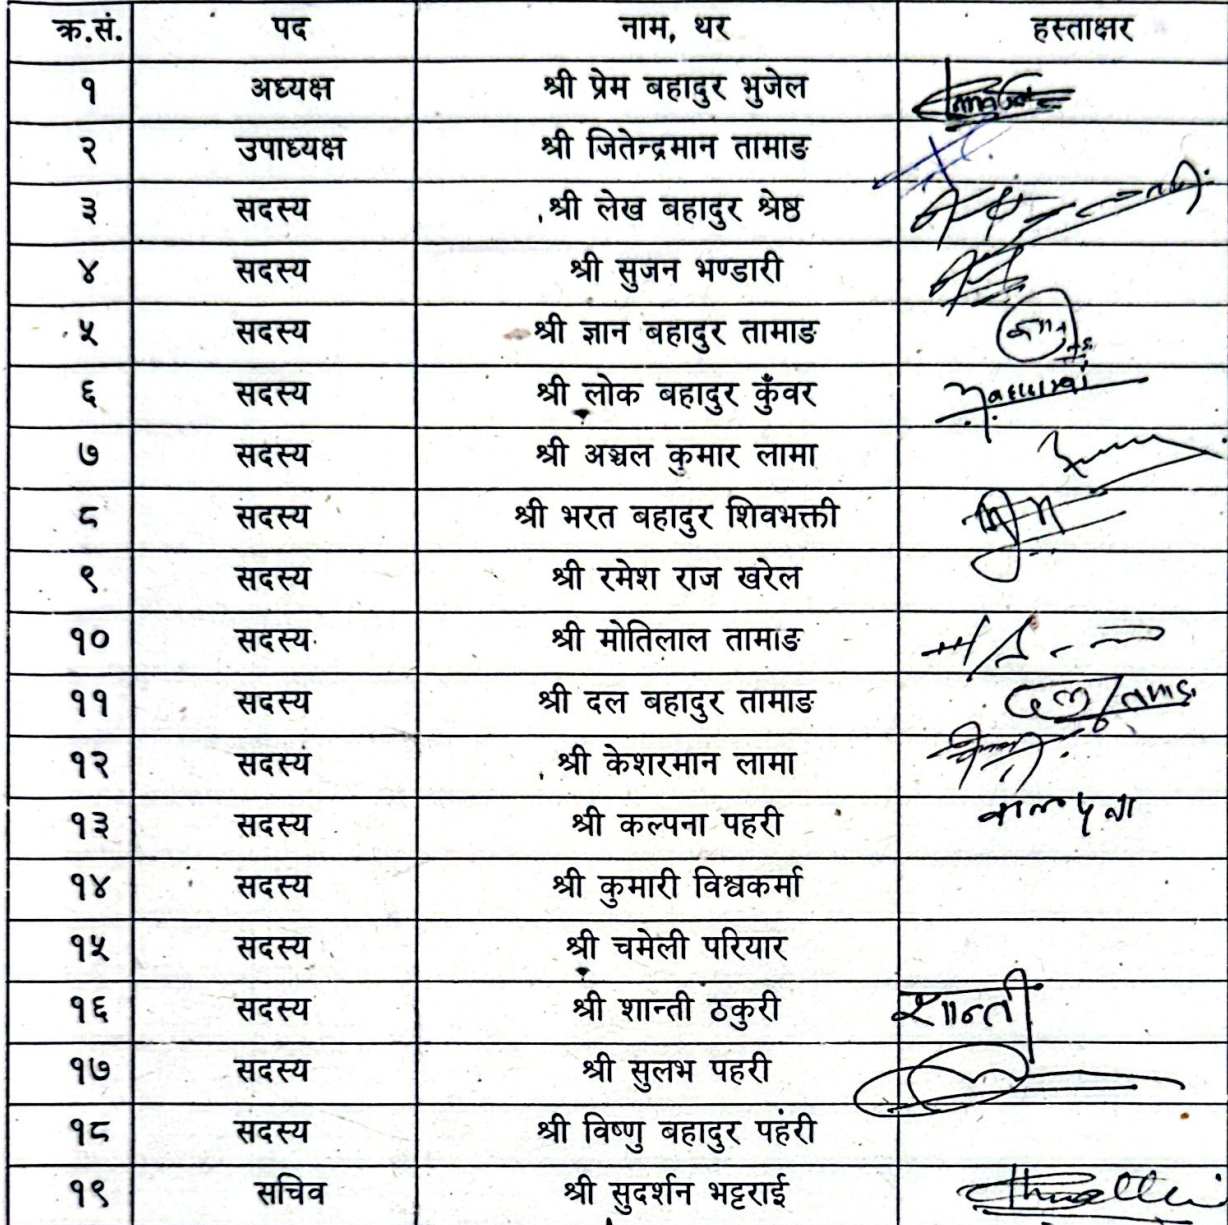 क्र.सं. पद नाम, थर हस्ताक्षर
१ अध्यक्ष श्री प्रेम बहादुर भुजेल
२ उपाध्यक्ष श्री जितेन्द्रमान तामाङ
३ सदस्य श्री लेख बहादुर श्रेष्ठ
४ सदस्य श्री सुजन भण्डारी
५ सदस्य श्री ज्ञान बहादुर तामाङ
६ सदस्य श्री लोक बहादुर कुँवर
७ सदस्य श्री अञ्चल कुमार लामा
८ सदस्य श्री भरत बहादुर शिवभक्ती
९ सदस्य श्री रमेश राज खरेल
१० सदस्य श्री मोतिलाल तामाङ
११ सदस्य श्री दल बहादुर तामाङ
१२ सदस्य श्री केशरमान लामा
१३ सदस्य श्री कल्पना पहरी कल्पना
१४ सदस्य श्री कुमारी विश्वकर्मा
१५ सदस्य श्री चमेली परियार
१६ सदस्य श्री शान्ती ठकुरी शान्ती
१७ सदस्य श्री सुलभ पहरी
१८ सदस्य श्री विष्णु बहादुर पहरी
१९ सचिव श्री सुदर्शन भट्टराई